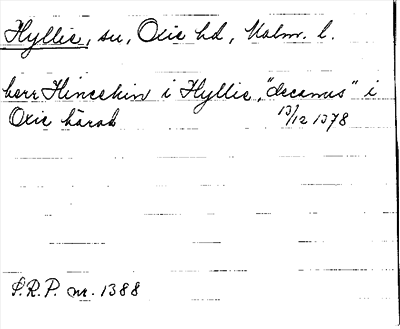 Hyllie, sn, Oxie hd, Malm. l.
herr Hincekin i Hyllie, "decanus" i
Oxie härad 13/12 1378
S.R.P. nr. 1388